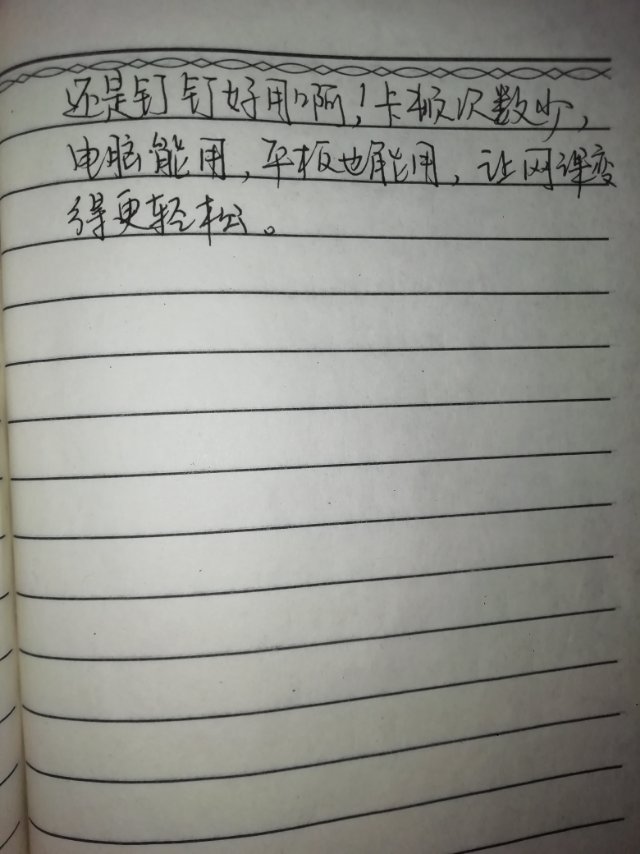 还是钉钉好用啊！卡顿次数少，
电脑能用，平板也能用，让网课变
得更轻松。